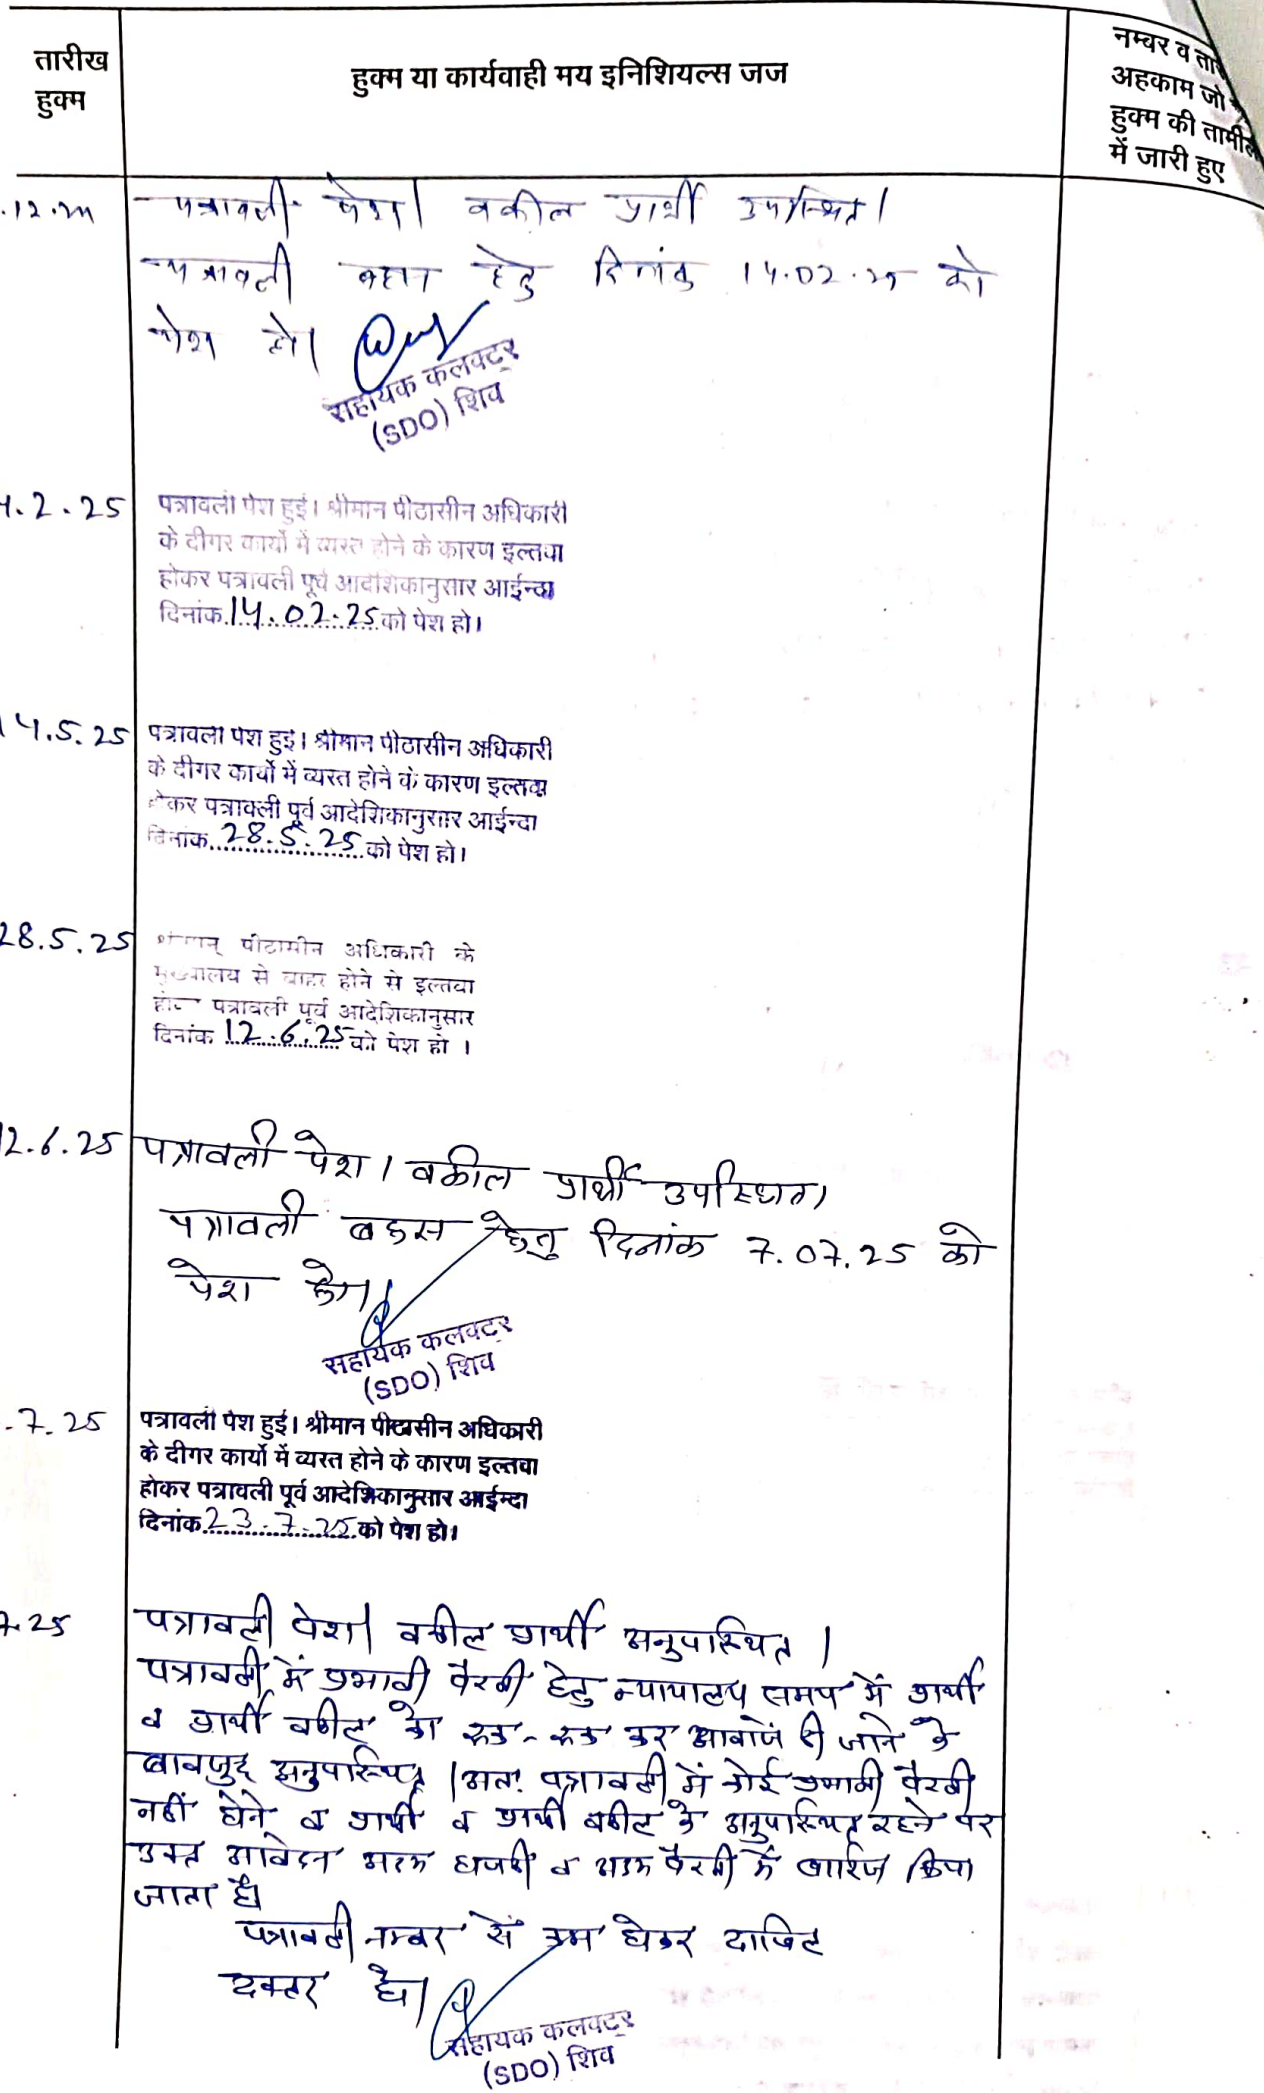 तारीख
हुक्म
हुक्म या कार्यवाही मय इनिशियल्स जज
नम्बर व
अहकाम जो
हुक्म की तामील
में जारी हुए
पत्रावली पेश। वकील प्रार्थी उपस्थित।
पत्रावली बहस हेतु दिनांक 14.02.25 को
पेश हो।
सहायक कलक्टर
(SDO) शिव
4.2.25 पत्रावली पेश हुई। श्रीमान पीठासीन अधिकारी
के दीगर कार्यो में व्यस्त होने के कारण इल्तवा
होकर पत्रावली पूर्व आदेशिकानुसार आईन्दा
दिनांक 14.02.25 को पेश हो।
14.5.25 पत्रावली पेश हुई। श्रीमान पीठासीन अधिकारी
के दीगर कार्यो में व्यस्त होने के कारण इल्तवा
होकर पत्रावली पूर्व आदेशिकानुसार आईन्दा
दिनांक 28.5.25 को पेश हो।
28.5.25 श्रीमान् पीठासीन अधिकारी के
मुख्यालय से बाहर होने से इल्तवा
होकर पत्रावली पूर्व आदेशिकानुसार
दिनांक 12.6.25 को पेश हो ।
12.6.25 पत्रावली पेश। वकील प्रार्थी उपस्थित।
पत्रावली बहस हेतु दिनांक 7.07.25 को
पेश हो।
सहायक कलक्टर
(SDO) शिव
.7.25 पत्रावली पेश हुई। श्रीमान पीठासीन अधिकारी
के दीगर कार्यो में व्यस्त होने के कारण इल्तवा
होकर पत्रावली पूर्व आदेशिकानुसार आईन्दा
दिनांक 23.7.25 को पेश हो।
7.25 पत्रावली पेश। वकील प्रार्थी अनुपस्थित।
पत्रावली में प्रभावी पैरवी हेतु न्यायालय समय में प्रार्थी
व प्रार्थी वकील को रूक-रूक कर आवाजें दी जाने के
बावजुद अनुपस्थित। अतः पत्रावली में कोई प्रभावी पैरवी
नहीं होने व प्रार्थी व प्रार्थी वकील के अनुपस्थित रहने पर
उक्त आवेदन अदम हाजरी व अदम पैरवी में खारिज किया
जाता है।
पत्रावली नम्बर से कम होकर दाखिल
दफ्तर हो।
सहायक कलक्टर
(SDO) शिव